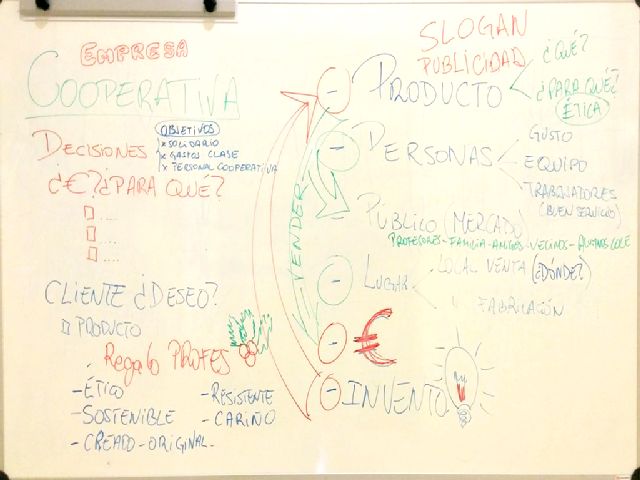 EMPRESA
COOPERATIVA
DECISIONES
OBJETIVOS
x SOLIDARIO
x GASTOS CLASE
x PERSONAL COOPERATIVA
¿€? ¿PARA QUÉ?
....
....
....
CLIENTE ¿DESEO?
PRODUCTO
Regalo PROFES
- ÉTICO
- SOSTENIBLE
- CREADO - ORIGINAL -
- RESISTENTE
- CARIÑO
SLOGAN
PUBLICIDAD
- PRODUCTO
¿QUÉ?
¿PARA QUÉ?
ÉTICA
- PERSONAS
GUSTO
EQUIPO
TRABAJADORES
(BUEN SERVICIO)
- PÚBLICO (MERCADO)
PROFESORES - FAMILIA - AMIGOS - VECINOS - ALUMNOS COLE
- LUGAR
LOCAL VENTA (¿DÓNDE?)
" FABRICACIÓN
- €
- INVENTO
VENDER